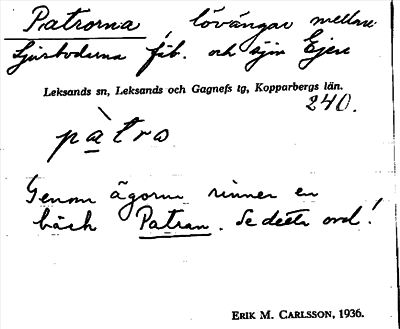 Patrorna, lövängar mellan
Ljusbodarna fäb. och sjön Ejen
Leksands sn, Leksands och Gagnefs tg, Kopparbergs län.
240.
pàtro
Genom ägorna rinner en
bäck Patran. Se detta ord!
ERIK M. CARLSSON, 1936.